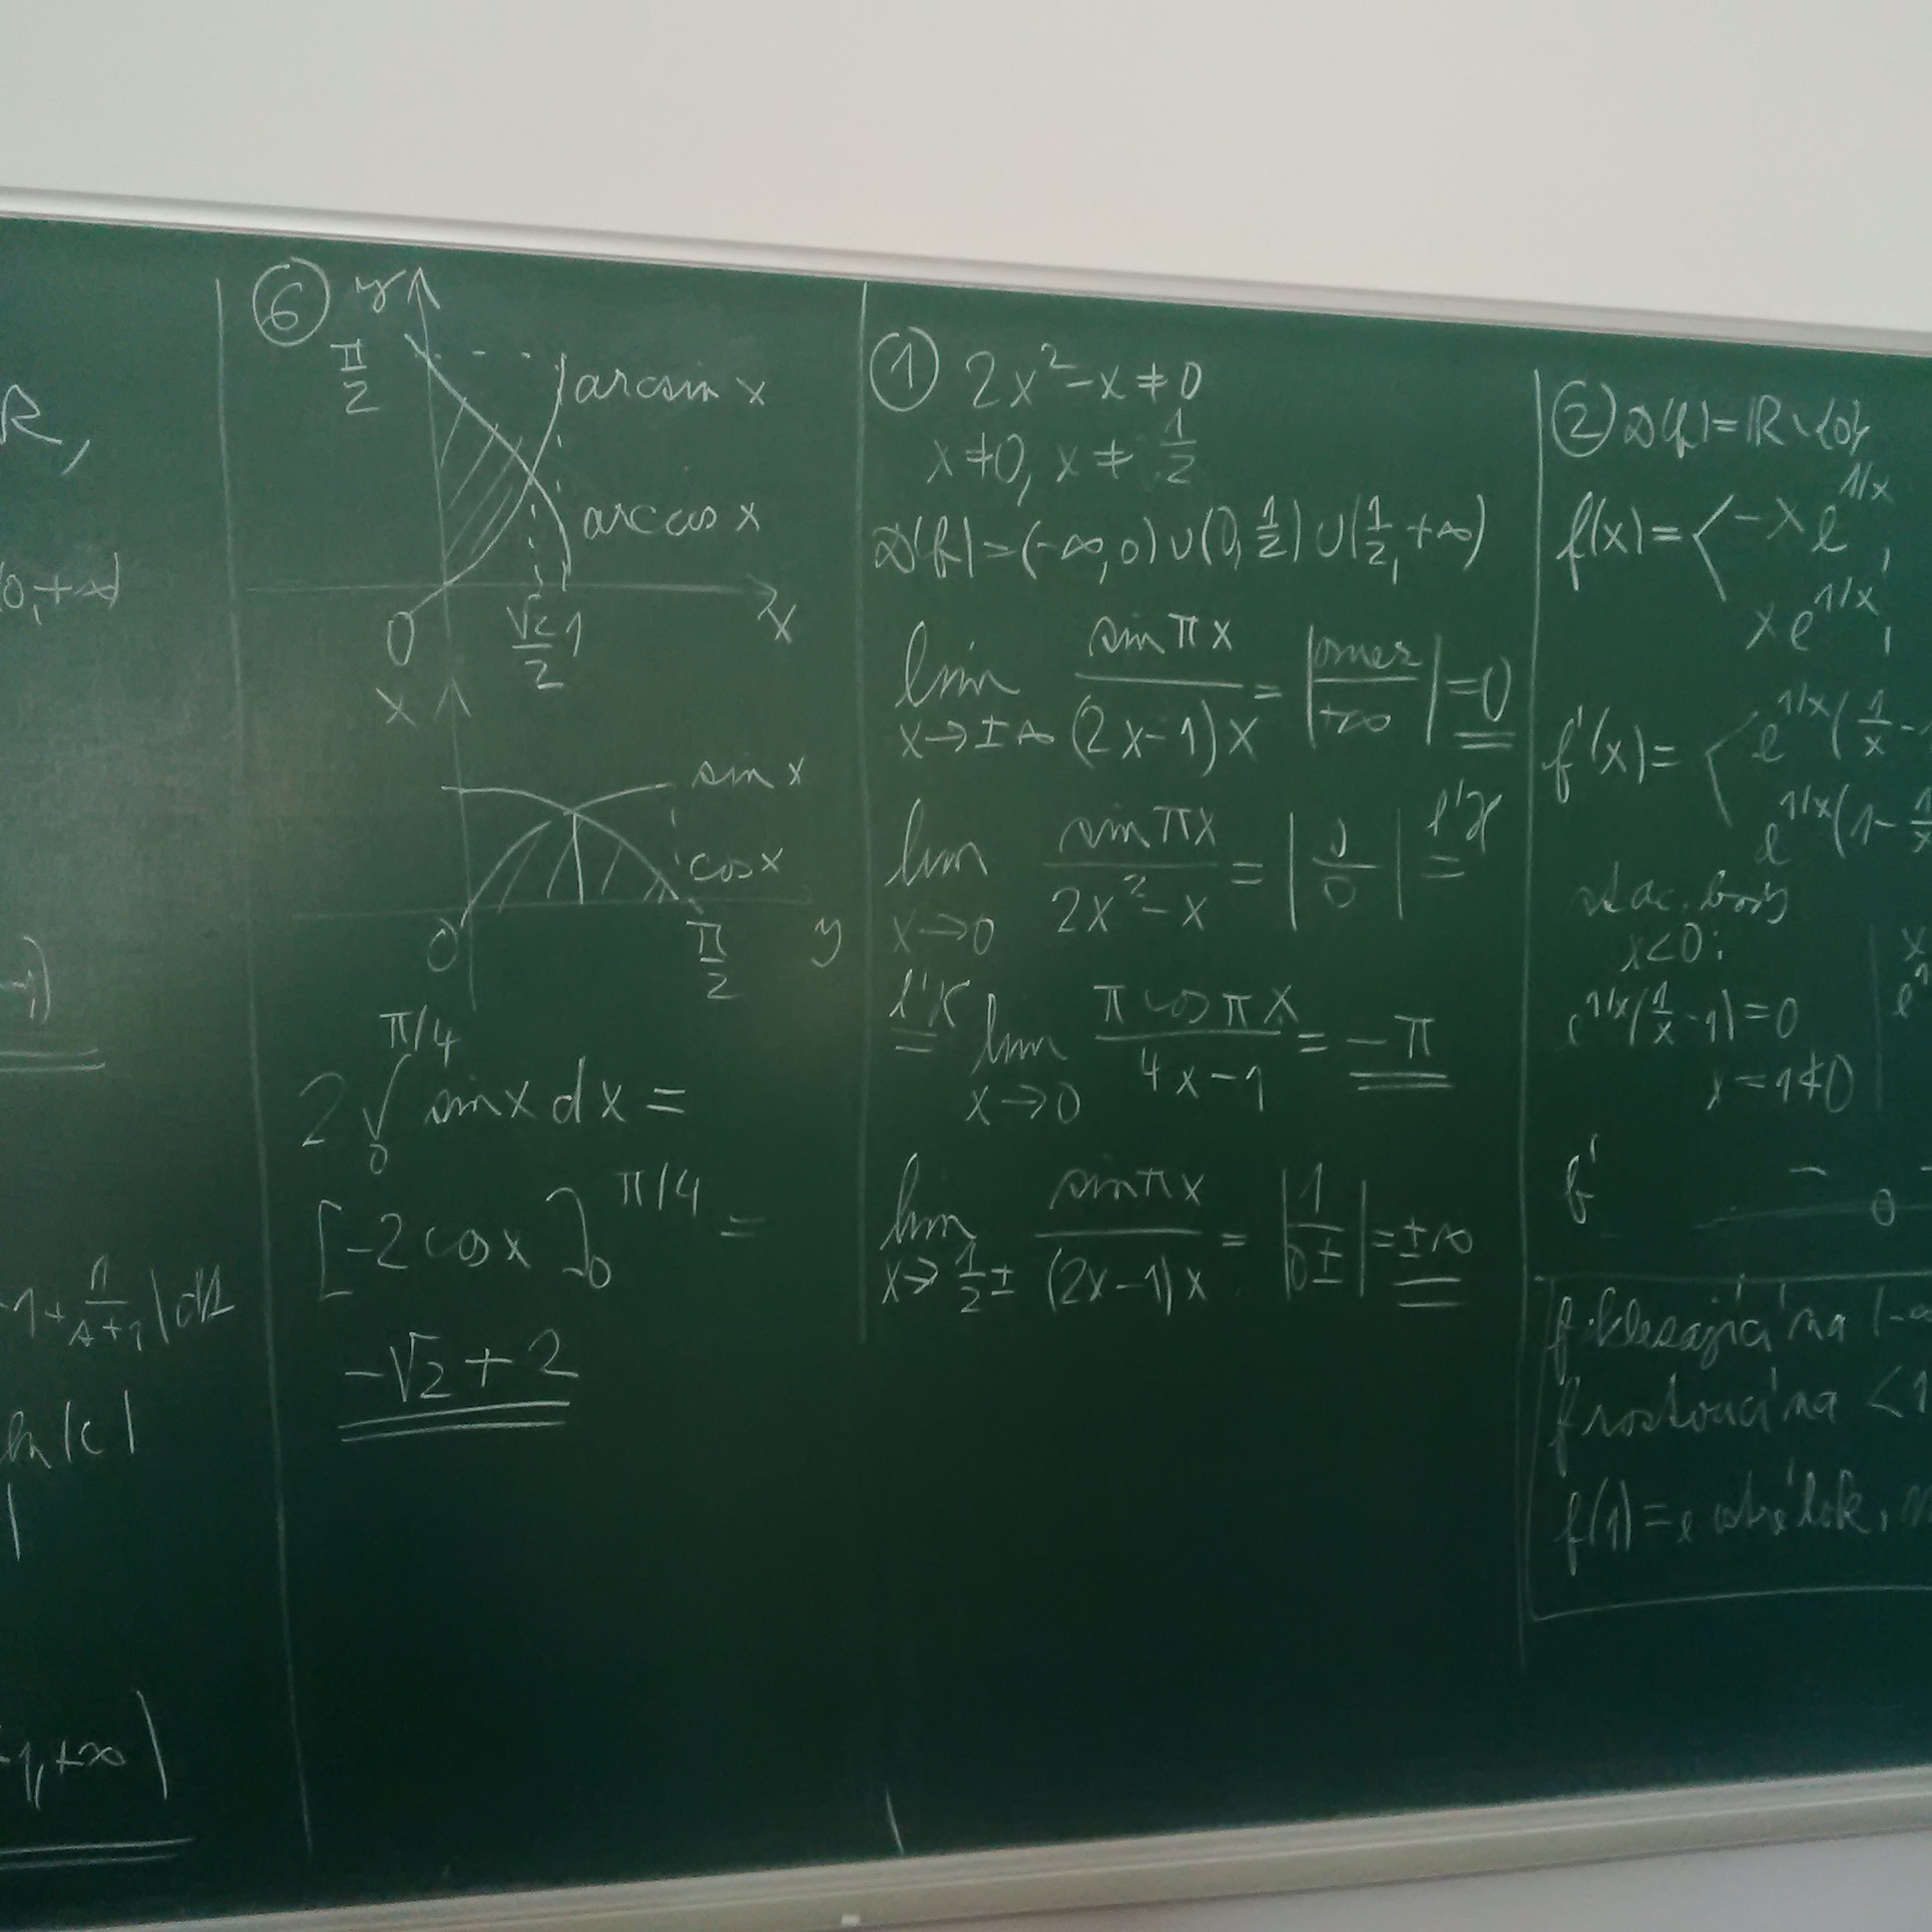 R,
(0,+∞)
-1)
-1+1/(s+1)|ds
ln|c|
-1,+∞)
⑥ y
π/2
arcsin x
arccos x
0 √2/2 1 x
x
sin x
cos x
0 π/2 y
2 ∫₀^(π/4) sin x dx =
[-2 cos x]₀^(π/4) =
-√2 + 2
① 2x²-x≠0
x≠0, x≠1/2
D(f)=(-∞,0)∪(0,1/2)∪(1/2,+∞)
lim x→±∞ sin πx/((2x-1)x) = |omez/+∞| = 0
lim x→0 sin πx/(2x²-x) = |0/0| =^(l'H)
=^(l'H) lim x→0 π cos πx/(4x-1) = -π
lim x→1/2± sin πx/((2x-1)x) = |1/0±| = ±∞
② D(f)=ℝ∖{0}
f(x)=< -x e^(1/x),
x e^(1/x),
f'(x)=< e^(1/x)(1/x-1
e^(1/x)(1-1/x
stac. body
x<0: x
e^(1/x)(1/x-1)=0 e^1
x=1≮0
f' - -
0
f klesající na (-∞
f rostoucí na <1
f(1)=e ostré lok. m